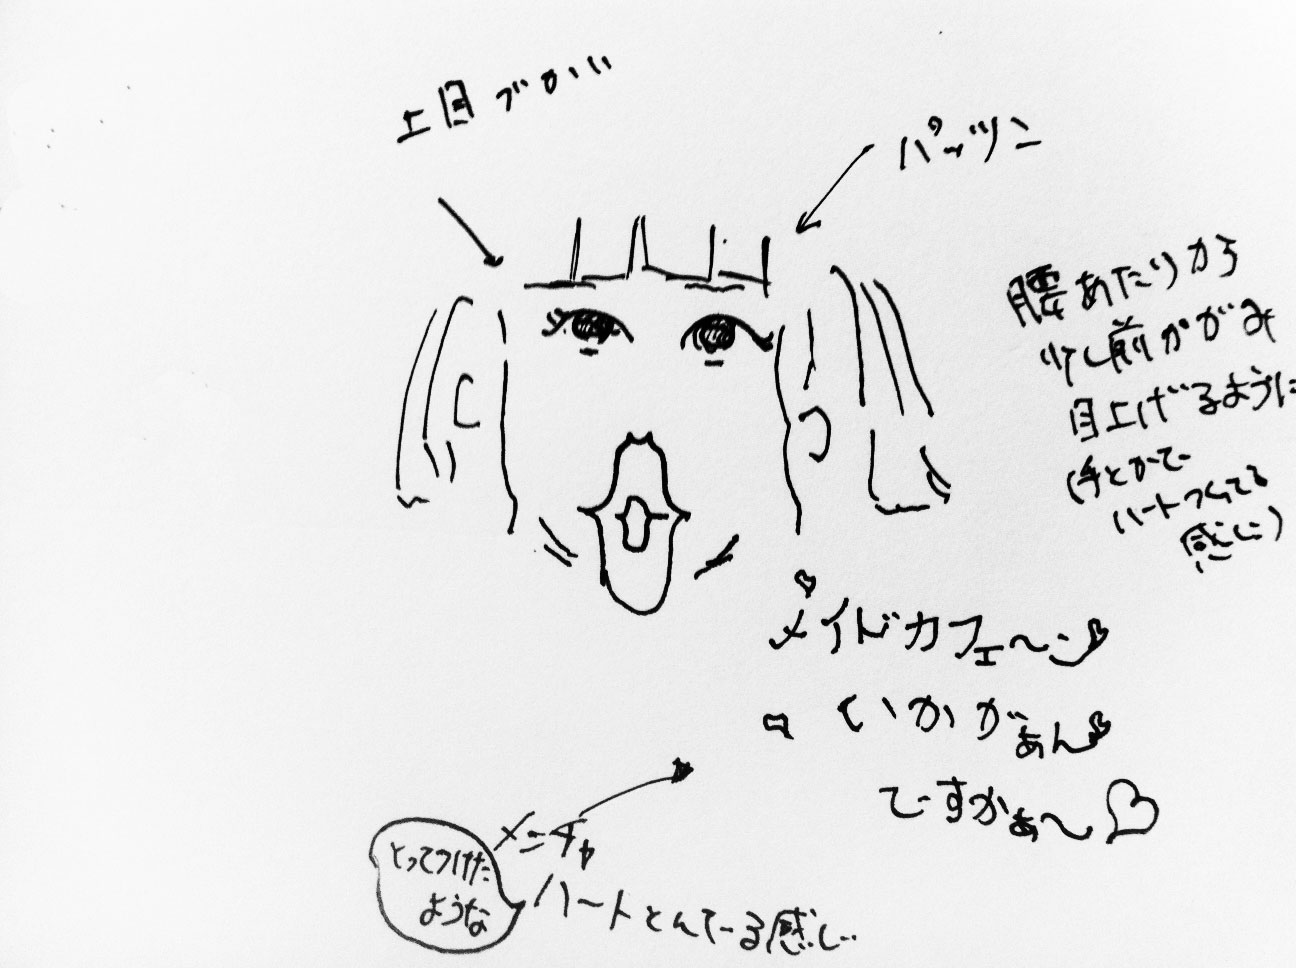 上目づかい
パッツン
腰あたりから
少し前かがみ
目上げるように
(手とかで
ハートつくってる
感じに)
メイドカフェ〜
いかがぁん
ですかぁ〜♡
メニチャ
とってつけた
ような
ハートとんでる感じ